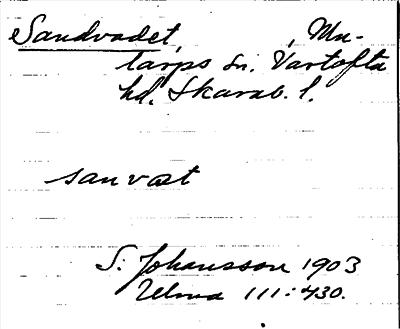 Sandvadet, Mu-
tarps sn. Vartofta
hd. Skarab. l.
sanvat
S. Johansson 1903
Ulma 111:430.